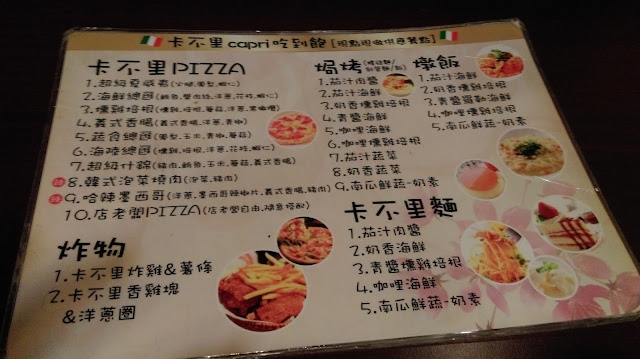 卡不里capri吃到飽 [現點現做供應餐點]
卡不里PIZZA
1.超級夏威夷(火腿,鳳梨,蝦仁)
2.海鮮總匯(鮪魚,蟹肉絲,洋蔥,花枝,蝦仁)
3.燻雞培根(燻雞,培根,蘑菇,洋蔥,黑橄欖)
4.義式香腸(義式香腸,青椒)
5.蔬食總匯(鳳梨,玉米,青椒,蘑菇)
6.海陸總匯(燻雞,培根,洋蔥,花枝,蝦仁)
7.超級什錦(豬肉,鮪魚,玉米,蘑菇,義式香腸)
8.韓式泡菜燒肉(泡菜,豬肉)
9.哈辣墨西哥(洋蔥,墨西哥辣椒片,義式香腸,豬肉)
10.店老闆PIZZA(店老闆自由,隨意搭配)
炸物
1.卡不里炸雞&薯條
2.卡不里香雞塊
&洋蔥圈
焗烤
1.茄汁肉醬
2.茄汁海鮮
3.奶香燻雞培根
4.青醬海鮮
5.咖哩海鮮
6.咖哩燻雞培根
7.茄汁蔬菜
8.奶香蔬菜
9.南瓜鮮蔬-奶素
燉飯
1.茄汁海鮮
2.奶香燻雞培根
3.青醬羅勒海鮮
4.咖哩燻雞培根
5.南瓜鮮蔬-奶素
卡不里麵
1.茄汁肉醬
2.奶香海鮮
3.青醬燻雞培根
4.咖哩海鮮
5.南瓜鮮蔬-奶素